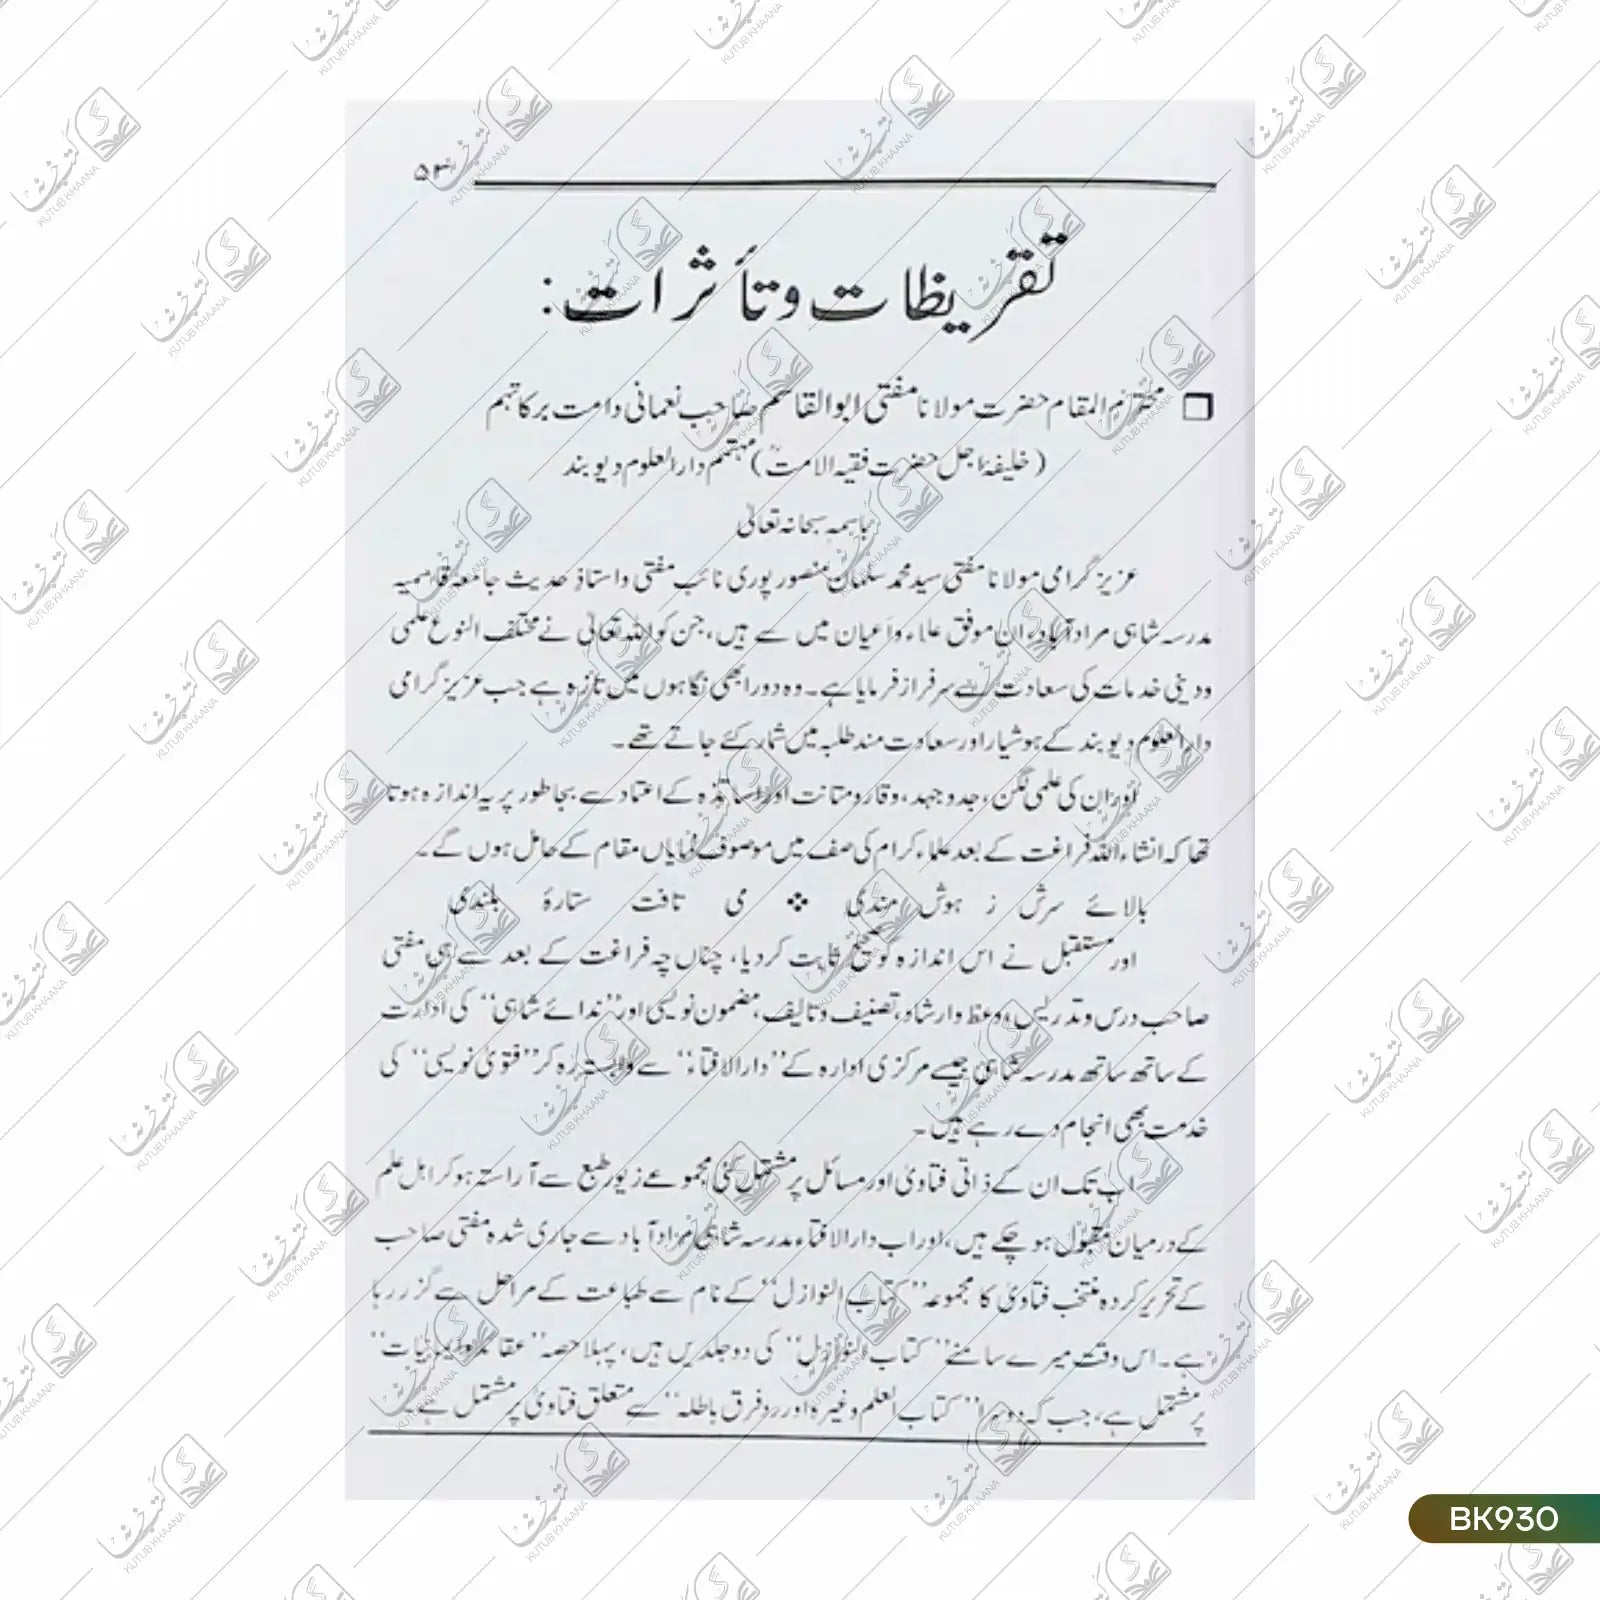 تقریظات وتأثرات:
❐ محترم المقام حضرت مولانا مفتی ابوالقاسم صاحب نعمانی دامت برکاتہم
(خلیفۂ اجل حضرت فقیہ الامتؒ) مہتمم دارالعلوم دیوبند
باسمہ سبحانہ تعالیٰ
عزیز گرامی مولانا مفتی سید محمد سلمان منصور پوری نائب مفتی واستاذِ حدیث جامعہ قاسمیہ
مدرسہ شاہی مرادآباد، ان موفق علماء واَعیان میں سے ہیں، جن کو اللہ تعالیٰ نے مختلف النوع علمی
ودینی خدمات کی سعادت سے سرفراز فرمایا ہے۔ وہ دور ابھی نگاہوں میں تازہ ہے جب عزیز گرامی
دارالعلوم دیوبند کے ہوشیار اور سعادت مند طلبہ میں شمار کئے جاتے تھے۔
اور ان کی علمی لگن، جدوجہد، وقار ومتانت اور اساتذہ کے اعتماد سے بجا طور پر یہ اندازہ ہوتا
تھا کہ انشاء اللہ فراغت کے بعد علماء کرام کی صف میں موصوف نمایاں مقام کے حامل ہوں گے۔
بالائے سرش ز ہوش مندی ❖ می تافت ستارۂ بلندی
اور مستقبل نے اس اندازہ کو صحیح ثابت کردیا، چناں چہ فراغت کے بعد سے ہی مفتی
صاحب درس وتدریس، وعظ وارشاد، تصنیف وتالیف، مضمون نویسی اور ”ندائے شاہی“ کی ادارت
کے ساتھ ساتھ مدرسہ شاہی جیسے مرکزی ادارہ کے ”دارالافتاء“ سے وابستہ رہ کر ”فتویٰ نویسی“ کی
خدمت بھی انجام دے رہے ہیں۔
اب تک ان کے ذاتی فتاویٰ اور مسائل پر مشتمل کئی مجموعے زیور طبع سے آراستہ ہوکر اہل علم
کے درمیان مقبول ہوچکے ہیں، اور اب دارالافتاء مدرسہ شاہی مرادآباد سے جاری شدہ مفتی صاحب
کے تحریر کردہ منتخب فتاویٰ کا مجموعہ ”کتاب النوازل“ کے نام سے طباعت کے مراحل سے گزر رہا
ہے۔ اس وقت میرے سامنے ”کتاب النوازل“ کی دو جلدیں ہیں، پہلا حصہ ”عقائد وایمانیات“
پر مشتمل ہے، جب کہ دوسرا ”کتاب العلم وغیرہ اور ردِ فرق باطلہ“ سے متعلق فتاویٰ پر مشتمل ہے۔
BK930
کتب خانہ
KUTUB KHAANA